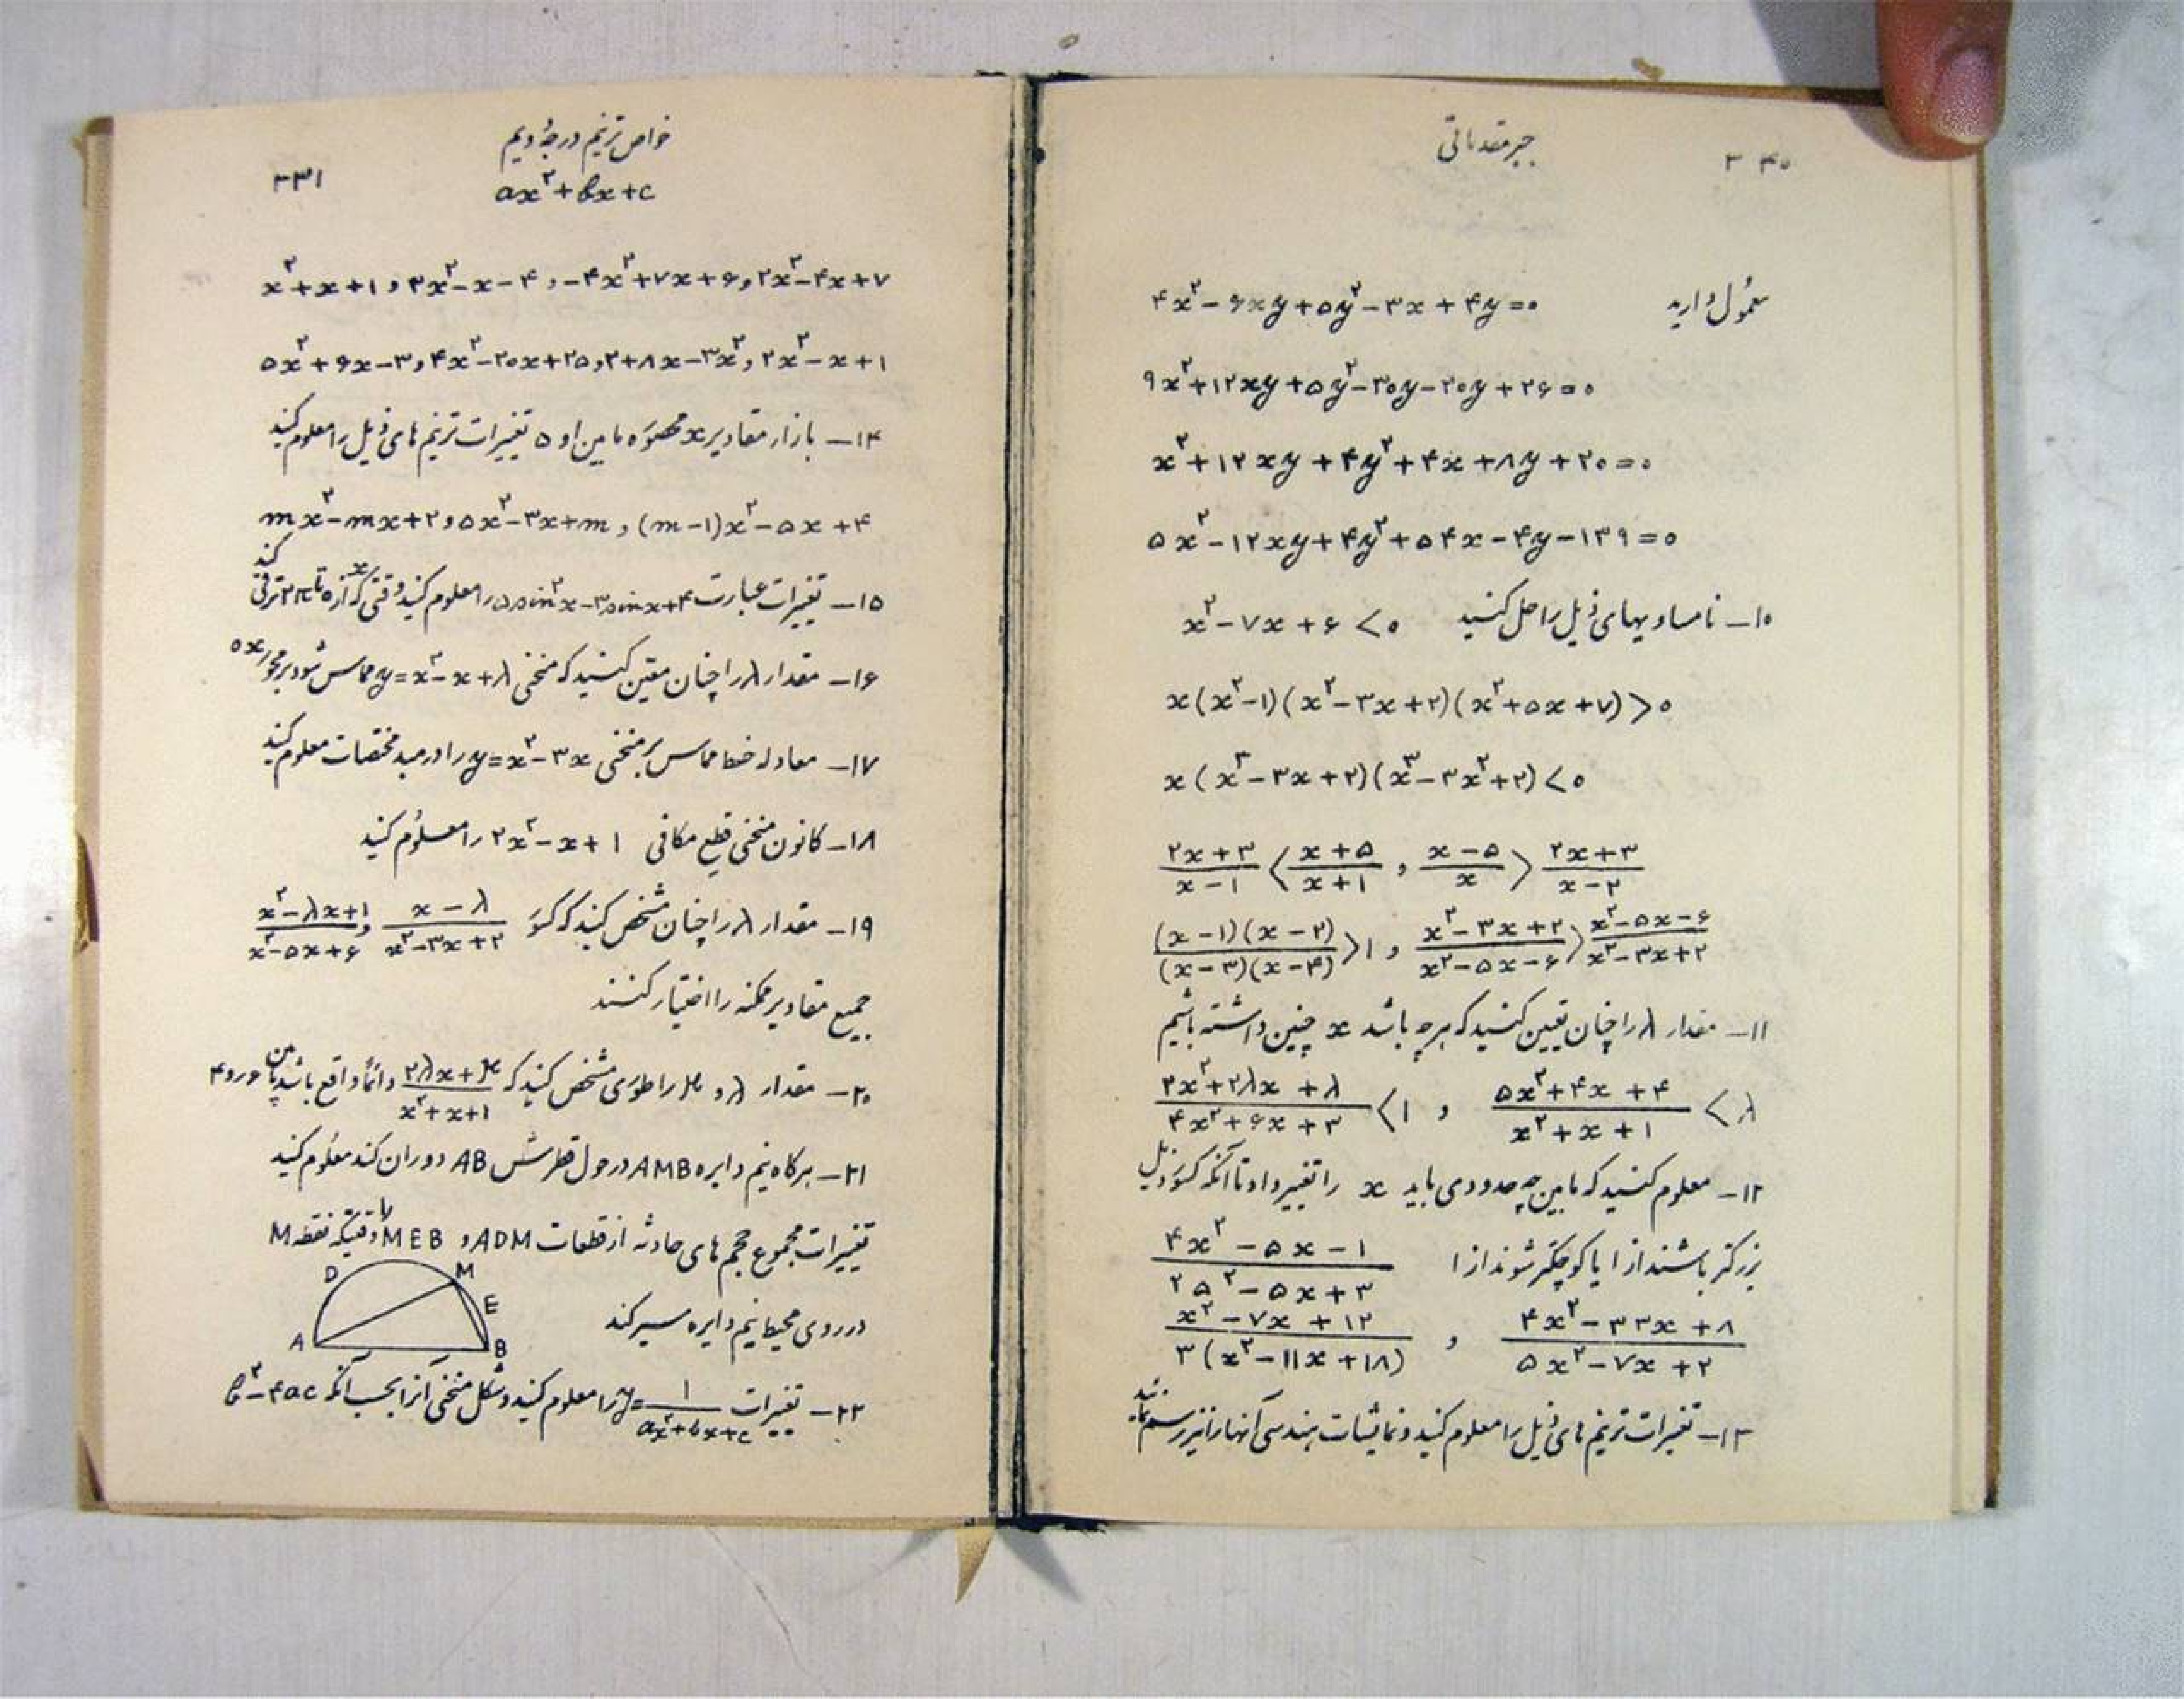 جبر مقدماتی
۳۴۰
معمول دارید ۴x²-۶xy+۵y²-۳x+۴y=۰
۹x²+۱۲xy+۵y²-۳۰y-۲۰y+۲۶=۰
x²+۱۲xy+۴y²+۴x+۸y+۲۰=۰
۵x²-۱۲xy+۴y²+۵۴x-۴y-۱۳۹=۰
۱۰- نامساویهای ذیل را حل کنید x²-۷x+۶<۰
x(x²-۱)(x²-۳x+۲)(x²+۵x+۷)>۰
x(x³-۳x+۲)(x³-۳x²+۲)<۰
(۲x+۳)/(x-۱) < (x+۵)/(x+۱) , (x-۵)/x > (۲x+۳)/(x-۲)
((x-۱)(x-۲))/((x-۳)(x-۴)) >۱ , (x²-۳x+۲)/(x²-۵x-۶) > (x²-۵x-۶)/(x²-۳x+۲)
۱۱- مقدار λ را چنان تعیین کنید که هر چه باشد x چنین داشته باشیم
(۳x²+۲λx+λ)/(۴x²+۶x+۳) <۱ , (۵x²+۴x+۴)/(x²+x+۱) < λ
۱۲- معلوم کنید که مابین چه حدودی باید x را تغییر داد تا آنکه کسور ذیل
بزرگتر باشند از ۱ یا کوچکتر شوند از ۱ (۴x²-۵x-۱)/(۲۵²-۵x+۳)
(x²-۷x+۱۲)/(۳(x²-۱۱x+۱۸)) , (۴x²-۳۳x+۸)/(۵x²-۷x+۲)
۱۳- تغییرات ترینم های ذیل را معلوم کنید و نمایشات هندسی آنها را نیز رسم نمائید
خواص ترینم درجه دویم
ax²+bx+c
۳۳۱
x²+x+۱ , ۳x²-x-۴ , -۴x²+۷x+۶ , ۲x²-۴x+۷
۵x²+۶x-۳ , ۴x²-۲۰x+۲۵ , ۲+۸x-۳x² , ۲x²-x+۱
۱۴- بازاء مقادیر x محصوره مابین ۱ و ۵ تغییرات ترینم های ذیل را معلوم کنید
mx²-mx+۲ , ۵x²-۳x+m , (m-۱)x²-۵x+۴
۱۵- تغییرات عبارت ۵sin²x-۳sinx+۴ را معلوم کنید وقتی که x از ۰ تا ۲π ترقی کند
۱۶- مقدار λ را چنان معین کنید که منحنی y=x²-x+λ مماس شود بر محور ox
۱۷- معادله خط مماس بر منحنی y=x²-۳x را در مبدء مختصات معلوم کنید
۱۸- کانون منحنی قطع مکافی ۲x²-x+۱ را معلوم کنید
۱۹- مقدار λ را چنان مشخص کنید که کسور (x-λ)/(x²-۳x+۲) , (x²-λx+۱)/(x²-۵x+۶)
جمیع مقادیر ممکنه را اختیار کنند
۲۰- مقدار λ و μ را طوری مشخص کنید که (۲λx+μ)/(x²+x+۱) دائماً واقع باشد مابین ۶ و ۴
۲۱- هرگاه نیم دایره AMB در حول قطرش AB دوران کند معلوم کنید
تغییرات مجموع حجم های حادثه از قطعات ADM و MEB را وقتیکه نقطه M
در روی محیط نیم دایره سیر کند
D
M
E
A
B
۲۲- تغییرات y=۱/(ax²+bx+c) را معلوم کنید و شکل منحنی آنرا بحسب آنکه b²-۴ac